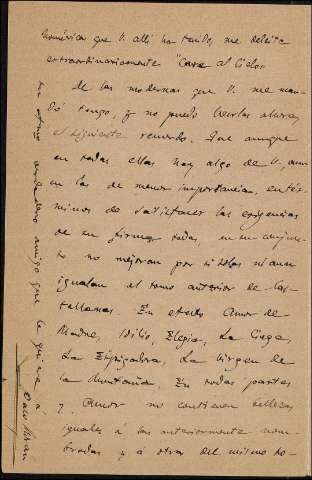 homérica que V. allí ha tenido, me deleita
extraordinariamente "Cara al Cielo"
de las modernas que V. me man-
dó tengo, y no puedo leerlas ahora,
el siguiente recuerdo. Que aunque
en todas ellas hay algo de V., aun
en las de menor importancia, en tér-
minos de satisfacer las exigencias
de su firma todas, en su conjun-
to no mejoran por sí solas ni aun
igualan el tomo anterior de Cas-
tellanas. En efecto Amor de
Madre, Idilio, Elegia, La Ciega,
La Espigadora, La Virgen de
la Montaña, En todas partes
y Amor no contienen bellezas
iguales á las anteriormente nom-
bradas y á otras del mismo to-
amigo que le quiere